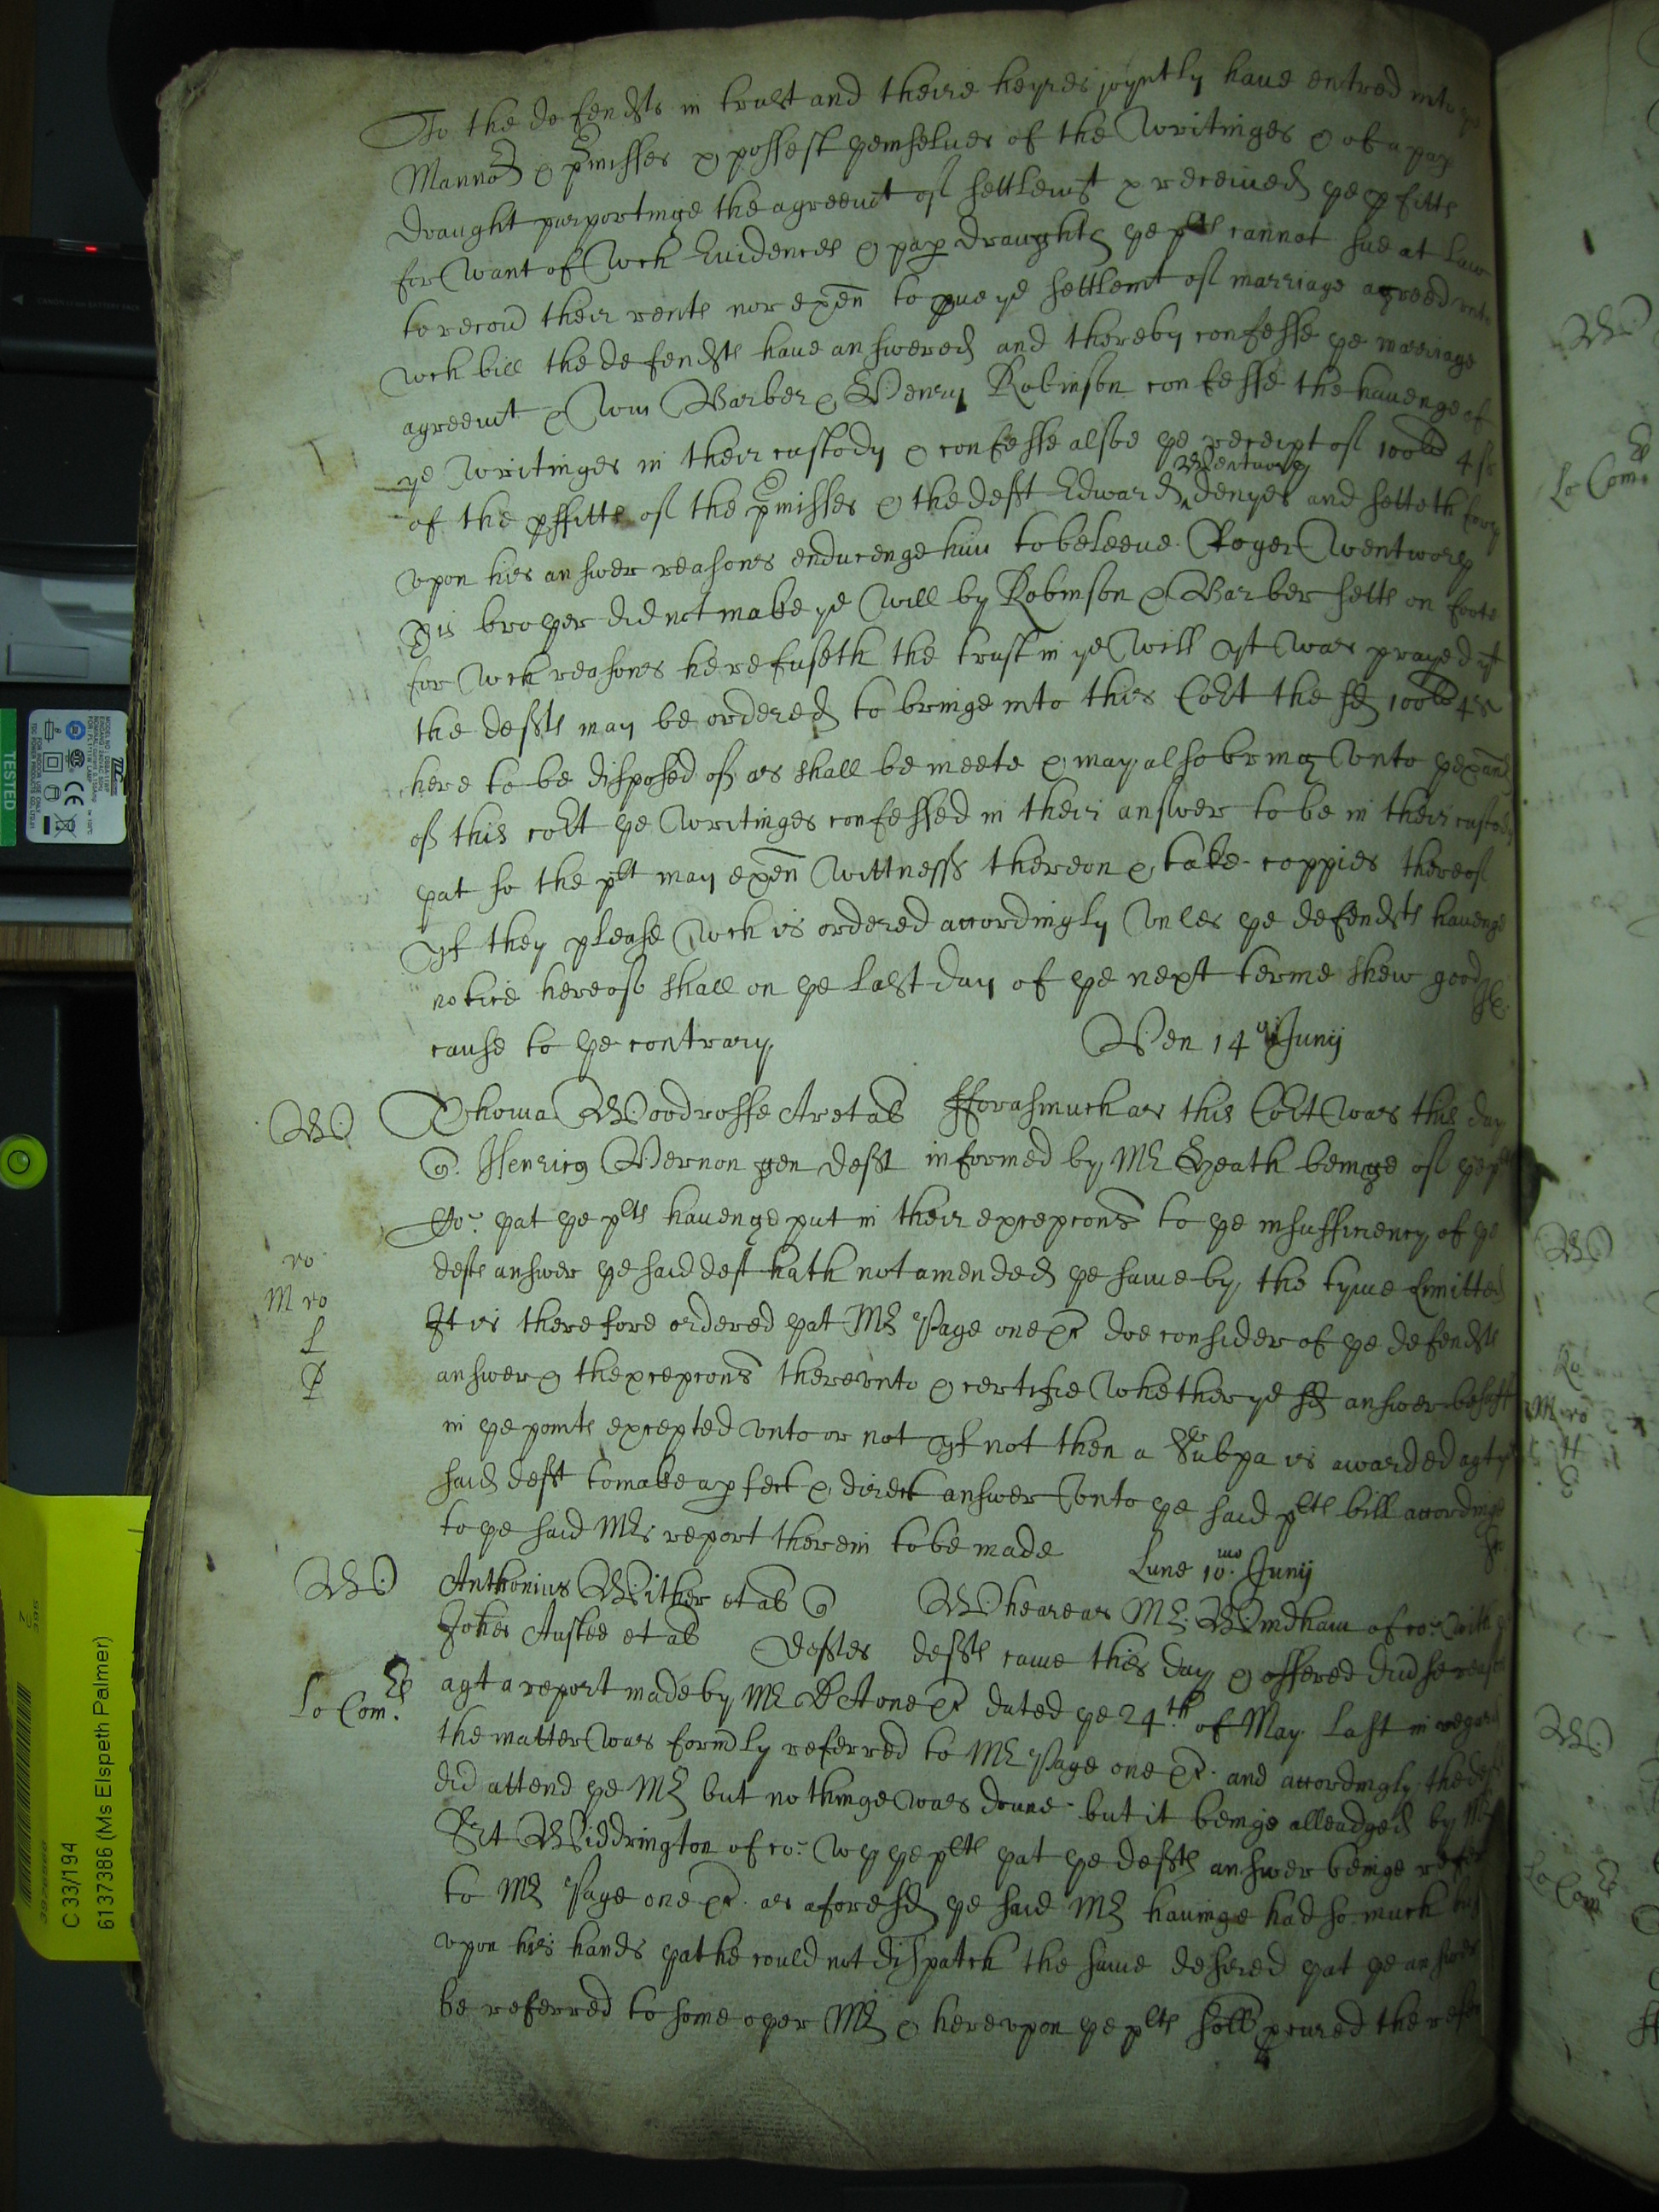 To the defendts in trust and theire heyres joyntly have entred into ye
Mannor & pmisses & possest themselves of the writinges & of a pap
draught purportinge the agreemt of settlemt & received ye pfitts
for want of wch Evidences & pap draughts ye plts cannot sue at Law
to recov their rents nor exen to pve ye settlemt of marriage agreed vnto
wch bill the defendts have answered and thereby confesse ye marriage
agreemt & Wm Barber & Henry Robinson confesse the havenge of
ye writinges in their custody & confesse alsoe ye receipt of 100li 4s
of the pffitts of the pmisses & the deft Edward Wentworth denyes and setteth forth
vpon his answer reasones enducenge him to beleeve Roger Wentworth
His brother did not make ye will by Robinson & Barber setts on foote
for wch reasones he refuseth the trust in ye will yt was prayed yt
the defts may be ordered to bringe into this Cort the sd 100li 4s
here to be disposed of as shall be meete & may also bring vnto
of this cort ye writinges confessed in their answer to be in their custody
that so the plt may exen wittness thereon & take coppies thereof
yf they please wch is ordered accordingly vnles ye defendts havenge
notice hereof shall on ye last day of ye next terme shew good
cause to ye contrary
Ven 14o Junij
Thoma Woodroffe Ar et als fforasmuch as this Cort was this day
Henricus Vernon gen deft informed by Mr Heath beinge of ye plts
Co. that ye plts havenge put in their excepcons to ye insufficiency of ye
defts answer ye said deft hath not amended ye same by the tyme limitted
ro
M ro
It is therefore ordered that Mr Page one &c doe consider of ye defendts
answer & thexcepcons therevnto & certifie whether ye sd answer be suff
in ye points excepted vnto or not yf not then a Subpa is awarded agt ye
said deft to make a pfect & direct answer vnto ye said plts bill accordinge
to ye said Mrs report therein to be made
Lune 10mo Junij
Anthonius Wither et als
Wheareas Mr Windham of co: with ye
Johes Austee et als Deftes defts came this day & offered divse reasons
Lo Com.
agt a report made by Mr one &c dated ye 24th of May last in regard
the matter was formrly referred to Mr Page one &c and accordingly the deft
did attend ye Mr but nothinge was donne but it beinge alleadged by Mr
Srt Widdrington of co: wth ye plts that ye defts answer beinge refer
to Mr Page one &c as aforesd ye said Mr havinge had so much
vpon his hands that he could not dispatch the same desired that ye answer
be referred to some other Mr & herevpon ye plts soll pcured the refer
TESTED
C 33/194
6137386 (Ms Elspeth Palmer)